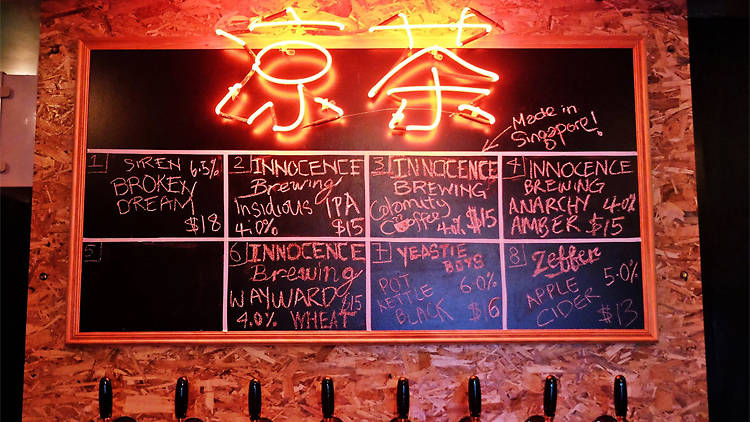 凉茶
Made in
Singapore!
1 SIREN 6.5%
BROKEN
DREAM
$18
2 INNOCENCE
Brewing
Insidious IPA
4.0% $15
3 INNOCENCE
BREWING
Calamuty
n Coffee 4.0% $15
4 INNOCENCE
BREWING
ANARCHY 4.0%
AMBER $15
5
6 INNOCENCE
Brewing
WAYWARD $15
4.0% WHEAT
7 YEASTIE
BOYS
POT 6.0%
KETTLE
BLACK $16
8 Zeffer
5.0%
APPLE
CIDER $13